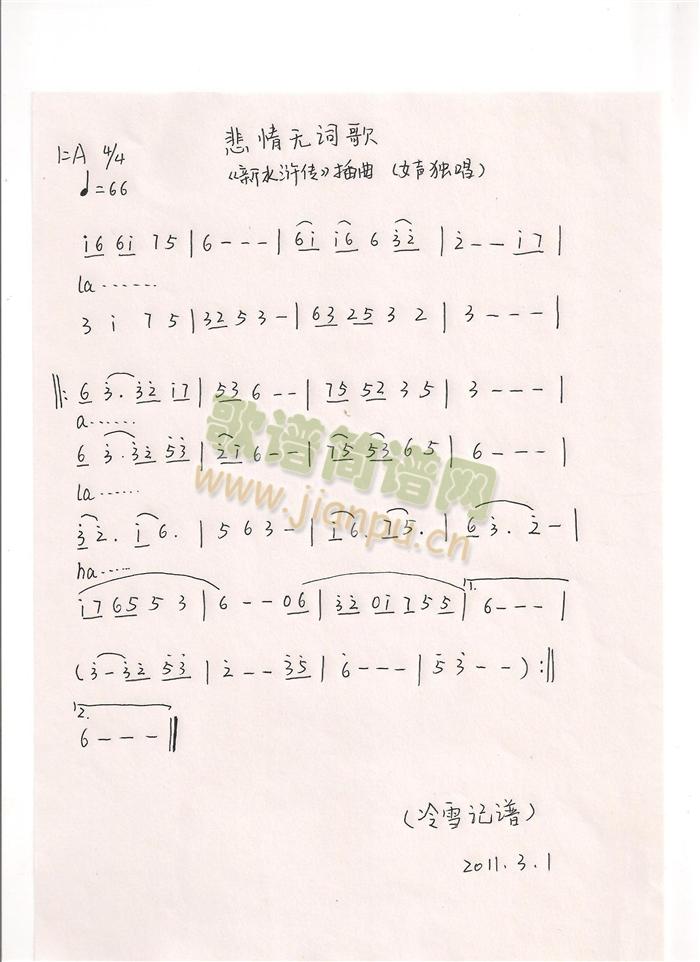 悲情无词歌
1=A 4/4
《新水浒传》插曲 (女声独唱)
♩=66
i6 6i 75 | 6 - - - | 6i i6 6 32 | 2 - - i7 |
la ······
3 i 7 5 | 32 5 3 - | 63 25 3 2 | 3 - - - |
‖: 6 3. 32 i7 | 53 6 - - | 75 52 3 5 | 3 - - - |
a ······
6 3. 32 53 | 2i 6 - - | 75 53 6 5 | 6 - - - |
la ······
32. i6. | 5 6 3 - | i6. 75. | 63. 2 - |
ha ······
i7 65 5 3 | 6 - - 06 | 32 0i 75 5 | 1. 6 - - - |
(3 - 32 53 | 2 - - 35 | 6 - - - | 5 3 - - ) :‖
2.
6 - - - ‖
歌谱简谱网
www.jianpu.cn
(冷雪记谱)
2011.3.1